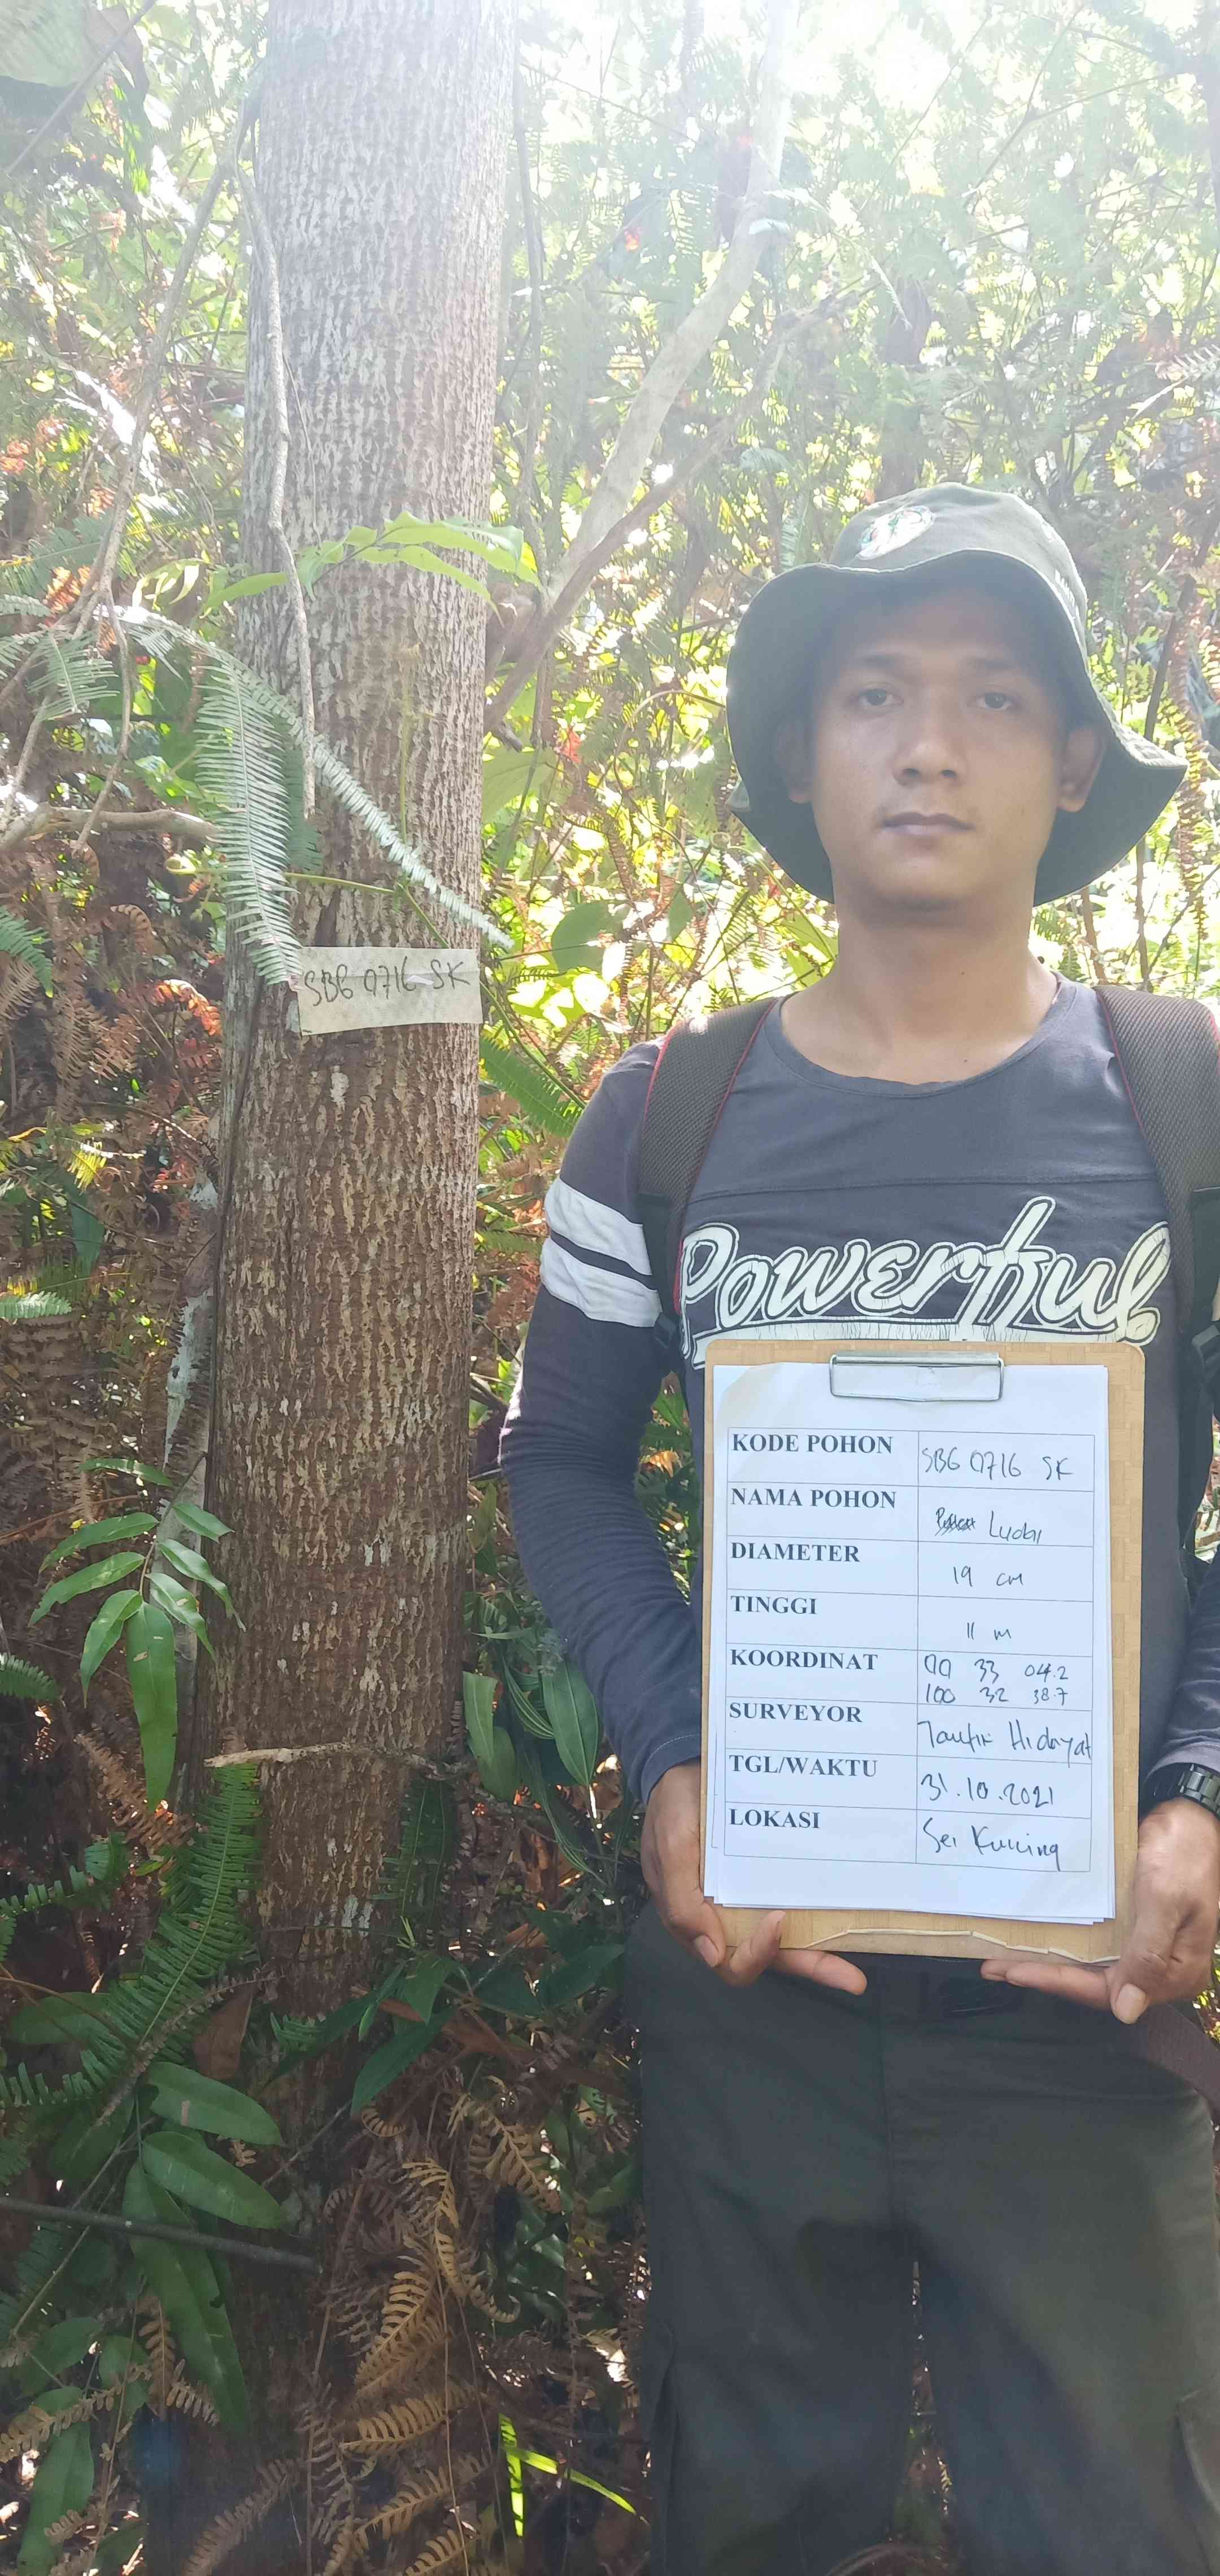 SBG 0716 SK
Powerful
KODE POHON SBG 0716 SK
NAMA POHON Luabi
DIAMETER 19 cm
TINGGI 11 m
KOORDINAT 00 33 04.2
100 32 38.7
SURVEYOR Taufik Hidayat
TGL/WAKTU 31.10.2021
LOKASI Sei Kuning